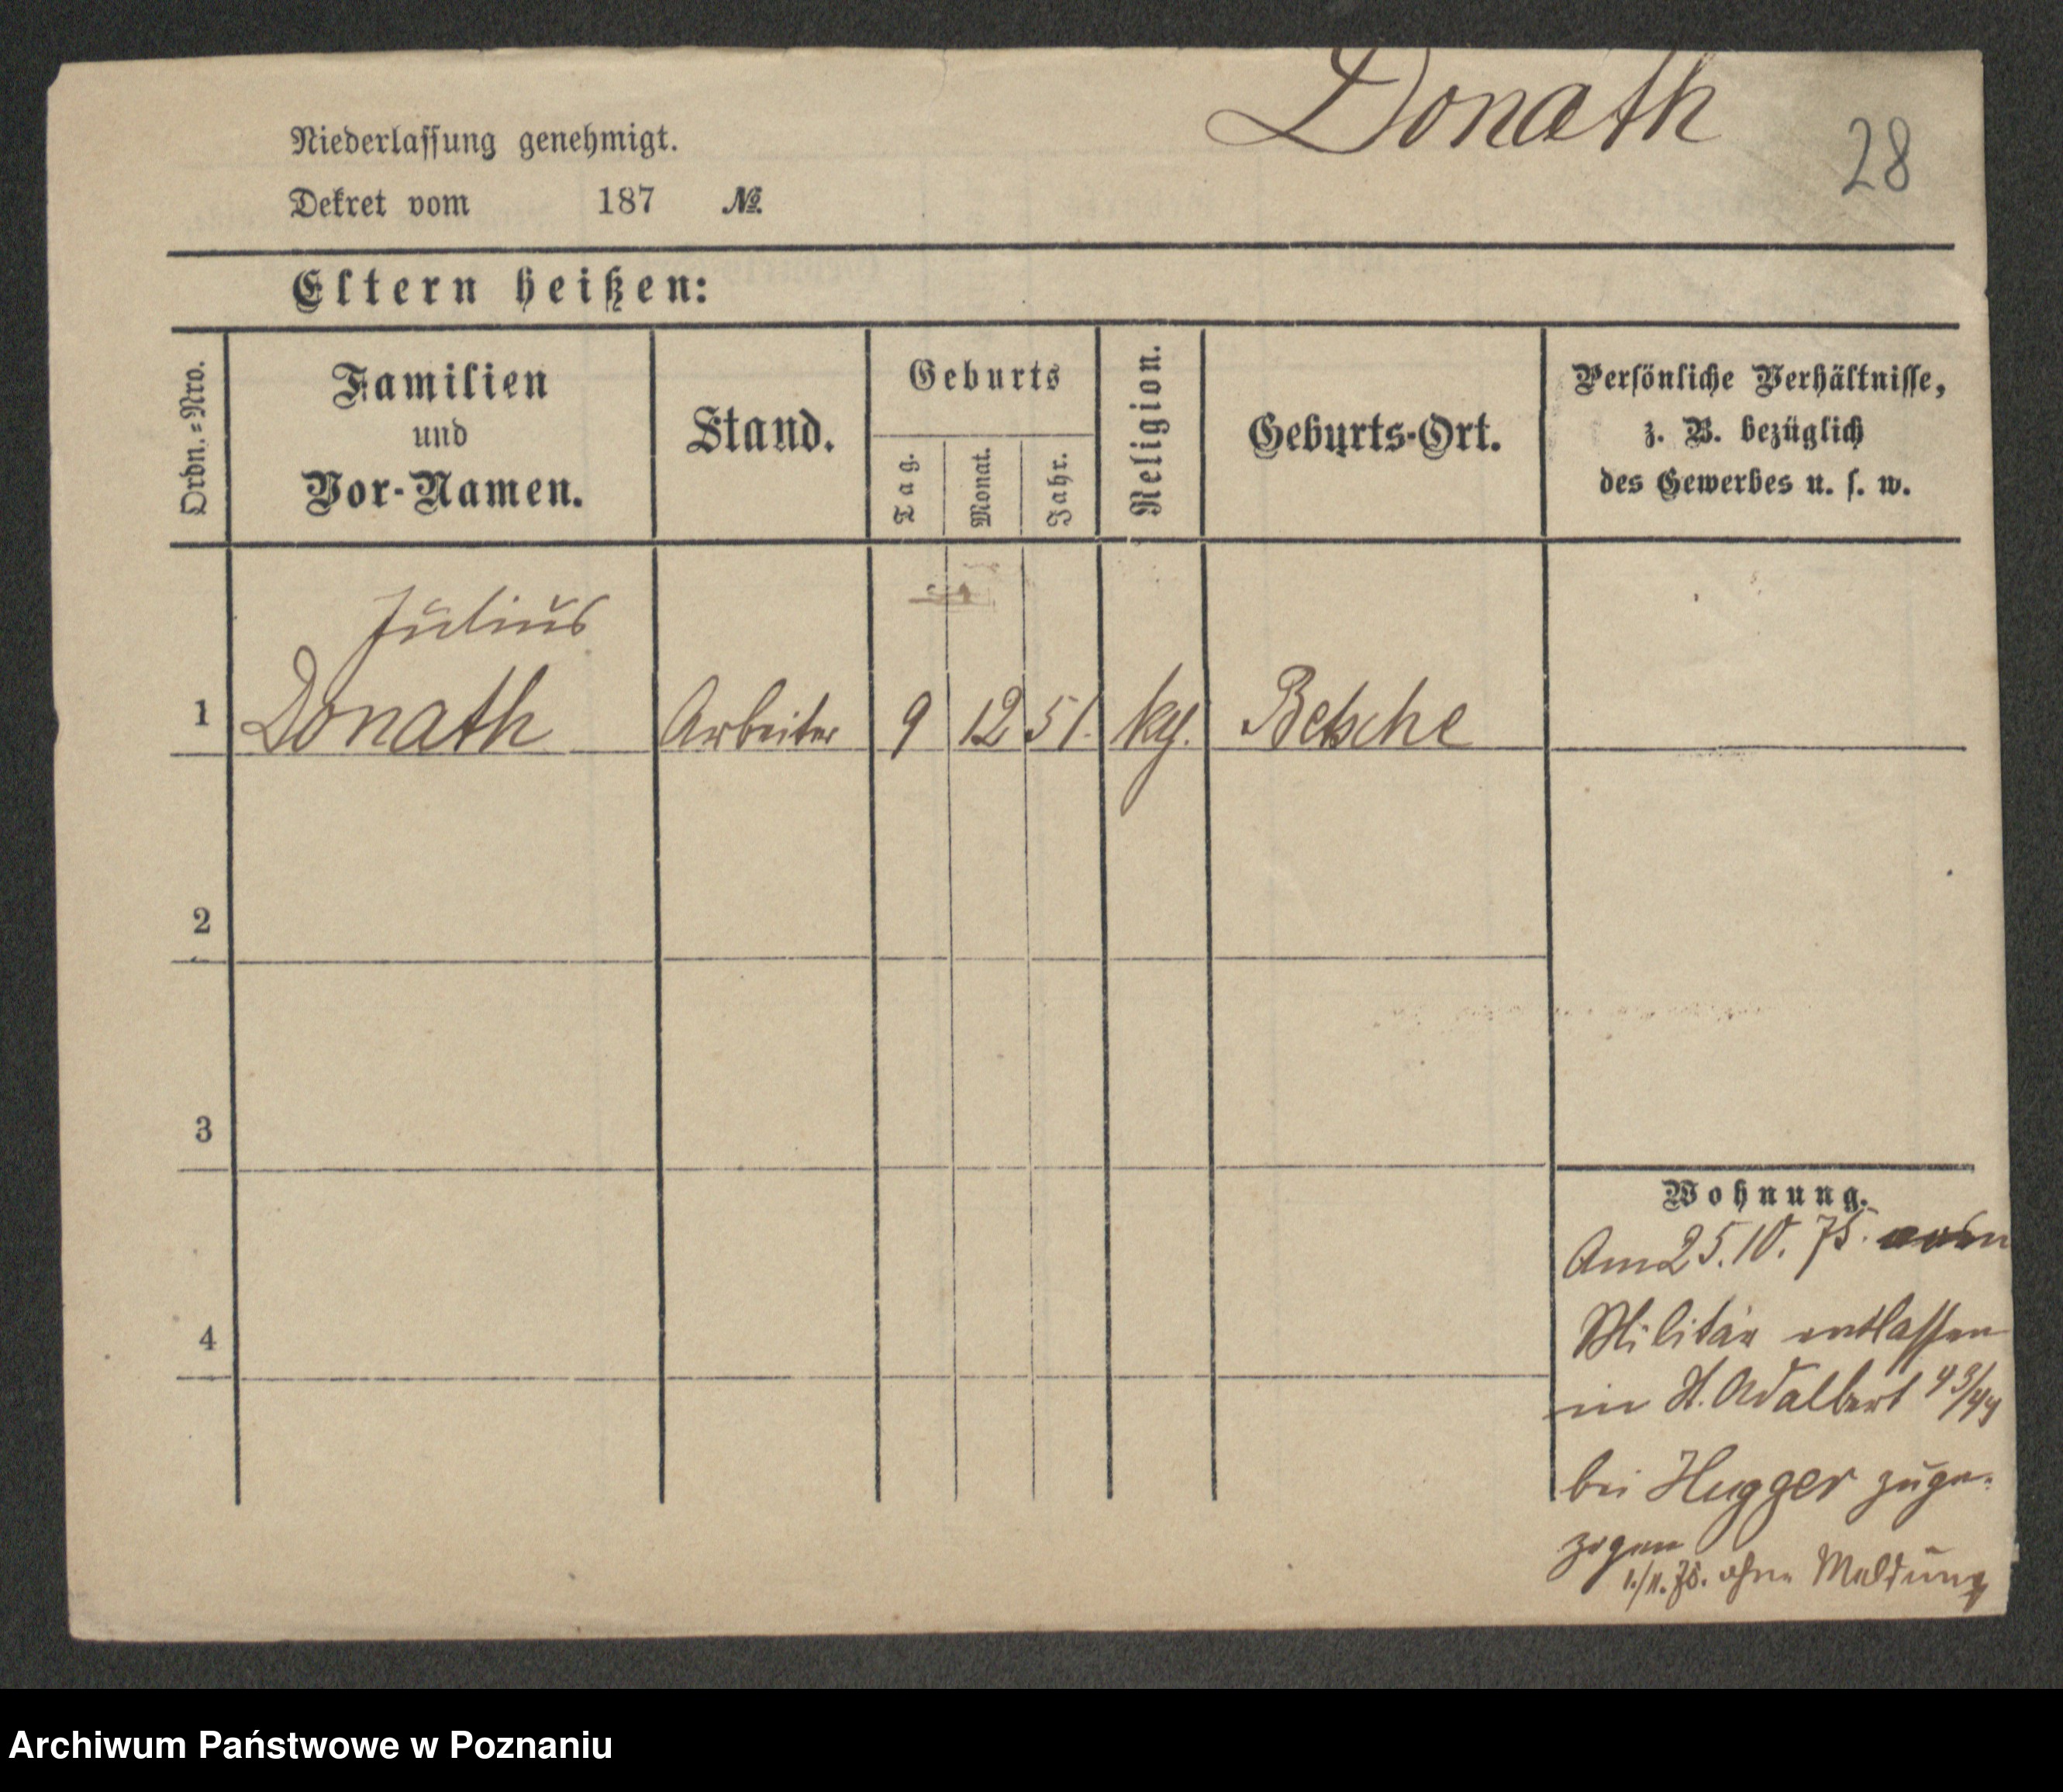 Donath
28
Niederlassung genehmigt.
Dekret vom 187 №
Eltern heißen:
Ordn.=Nro.
Familien
und
Vor-Namen.
Stand.
Geburts
Tag.
Monat.
Jahr.
Religion.
Geburts-Ort.
Persönliche Verhältnisse,
z. B. bezüglich
des Gewerbes u. s. w.
Julius
1 Donath Arbeiter 9 12 51. Betsche
2
3
4
Wohnung.
Am 25. 10. 75. vom
Militär entlassen
in St. Adalbert 43/44
bei Hugger zuge-
zogen
1./11. 75. ohne Meldung
Archiwum Państwowe w Poznaniu